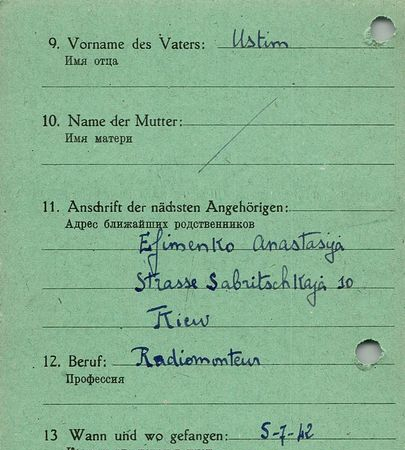 9. Vorname des Vaters: Ustim
Имя отца
10. Name der Mutter:
Имя матери
11. Anschrift der nächsten Angehörigen:
Адрес ближайших родственников
Efimenko Anastasija
Strasse Sabritschkaja 10
Kiew
12. Beruf: Radiomonteur
Профессия
13 Wann und wo gefangen: 5-7-42